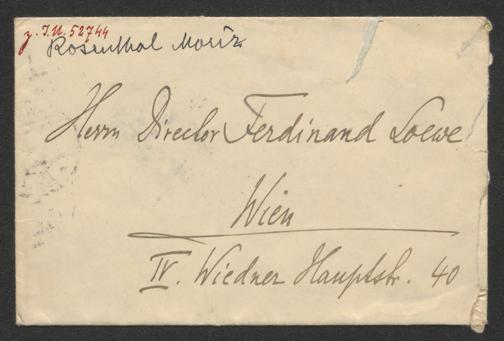 z. I.N. 52744
Rosenthal Moriz
Herrn Director Ferdinand Loewe
Wien
IV. Wiedner Hauptstr. 40